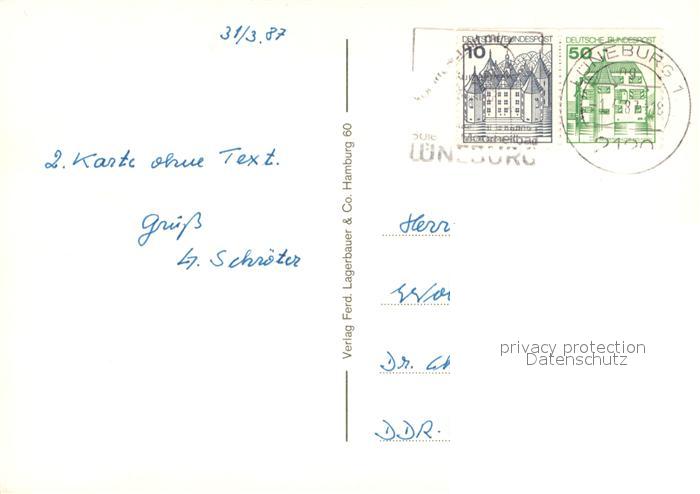 31/3.87
2. Karte ohne Text.
Gruß
H. Schröter
Verlag Ferd. Lagerbauer & Co. Hamburg 60
DEUTSCHE BUNDESPOST
10
DEUTSCHE BUNDESPOST
50
LÜNEBURG 1
2120
Moorheilbad
LÜNEBURG
Herr
Dr.
DDR.
privacy protection
Datenschutz